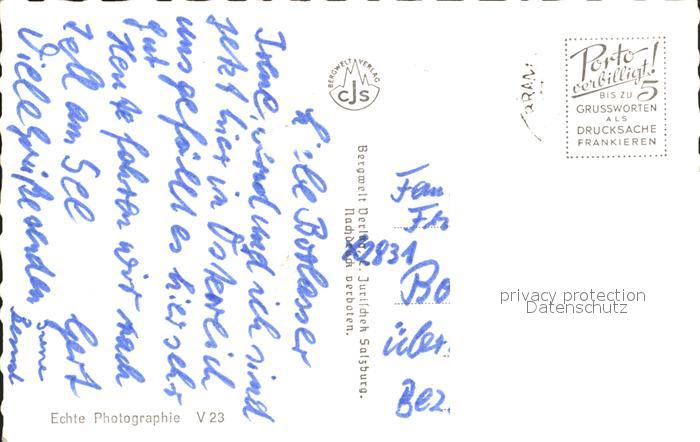 Liebe Botlasser
Irene, und und ich sind
jetzt hier in Österreich
uns gefällt es hier sehr
gut
Heute fahren wir nach
Zell am See
Viele Grüße senden
Gert
Irene
Bernd
Echte Photographie V 23
BERGWELT-VERLAG
CJS
Bergwelt Verlag C. Jurischek Salzburg.
Nachdruck verboten.
Porto
verbilligt!
BIS ZU 5
GRUSSWORTEN
ALS
DRUCKSACHE
FRANKIEREN
Fam
Bo
über
Bez.
privacy protection
Datenschutz